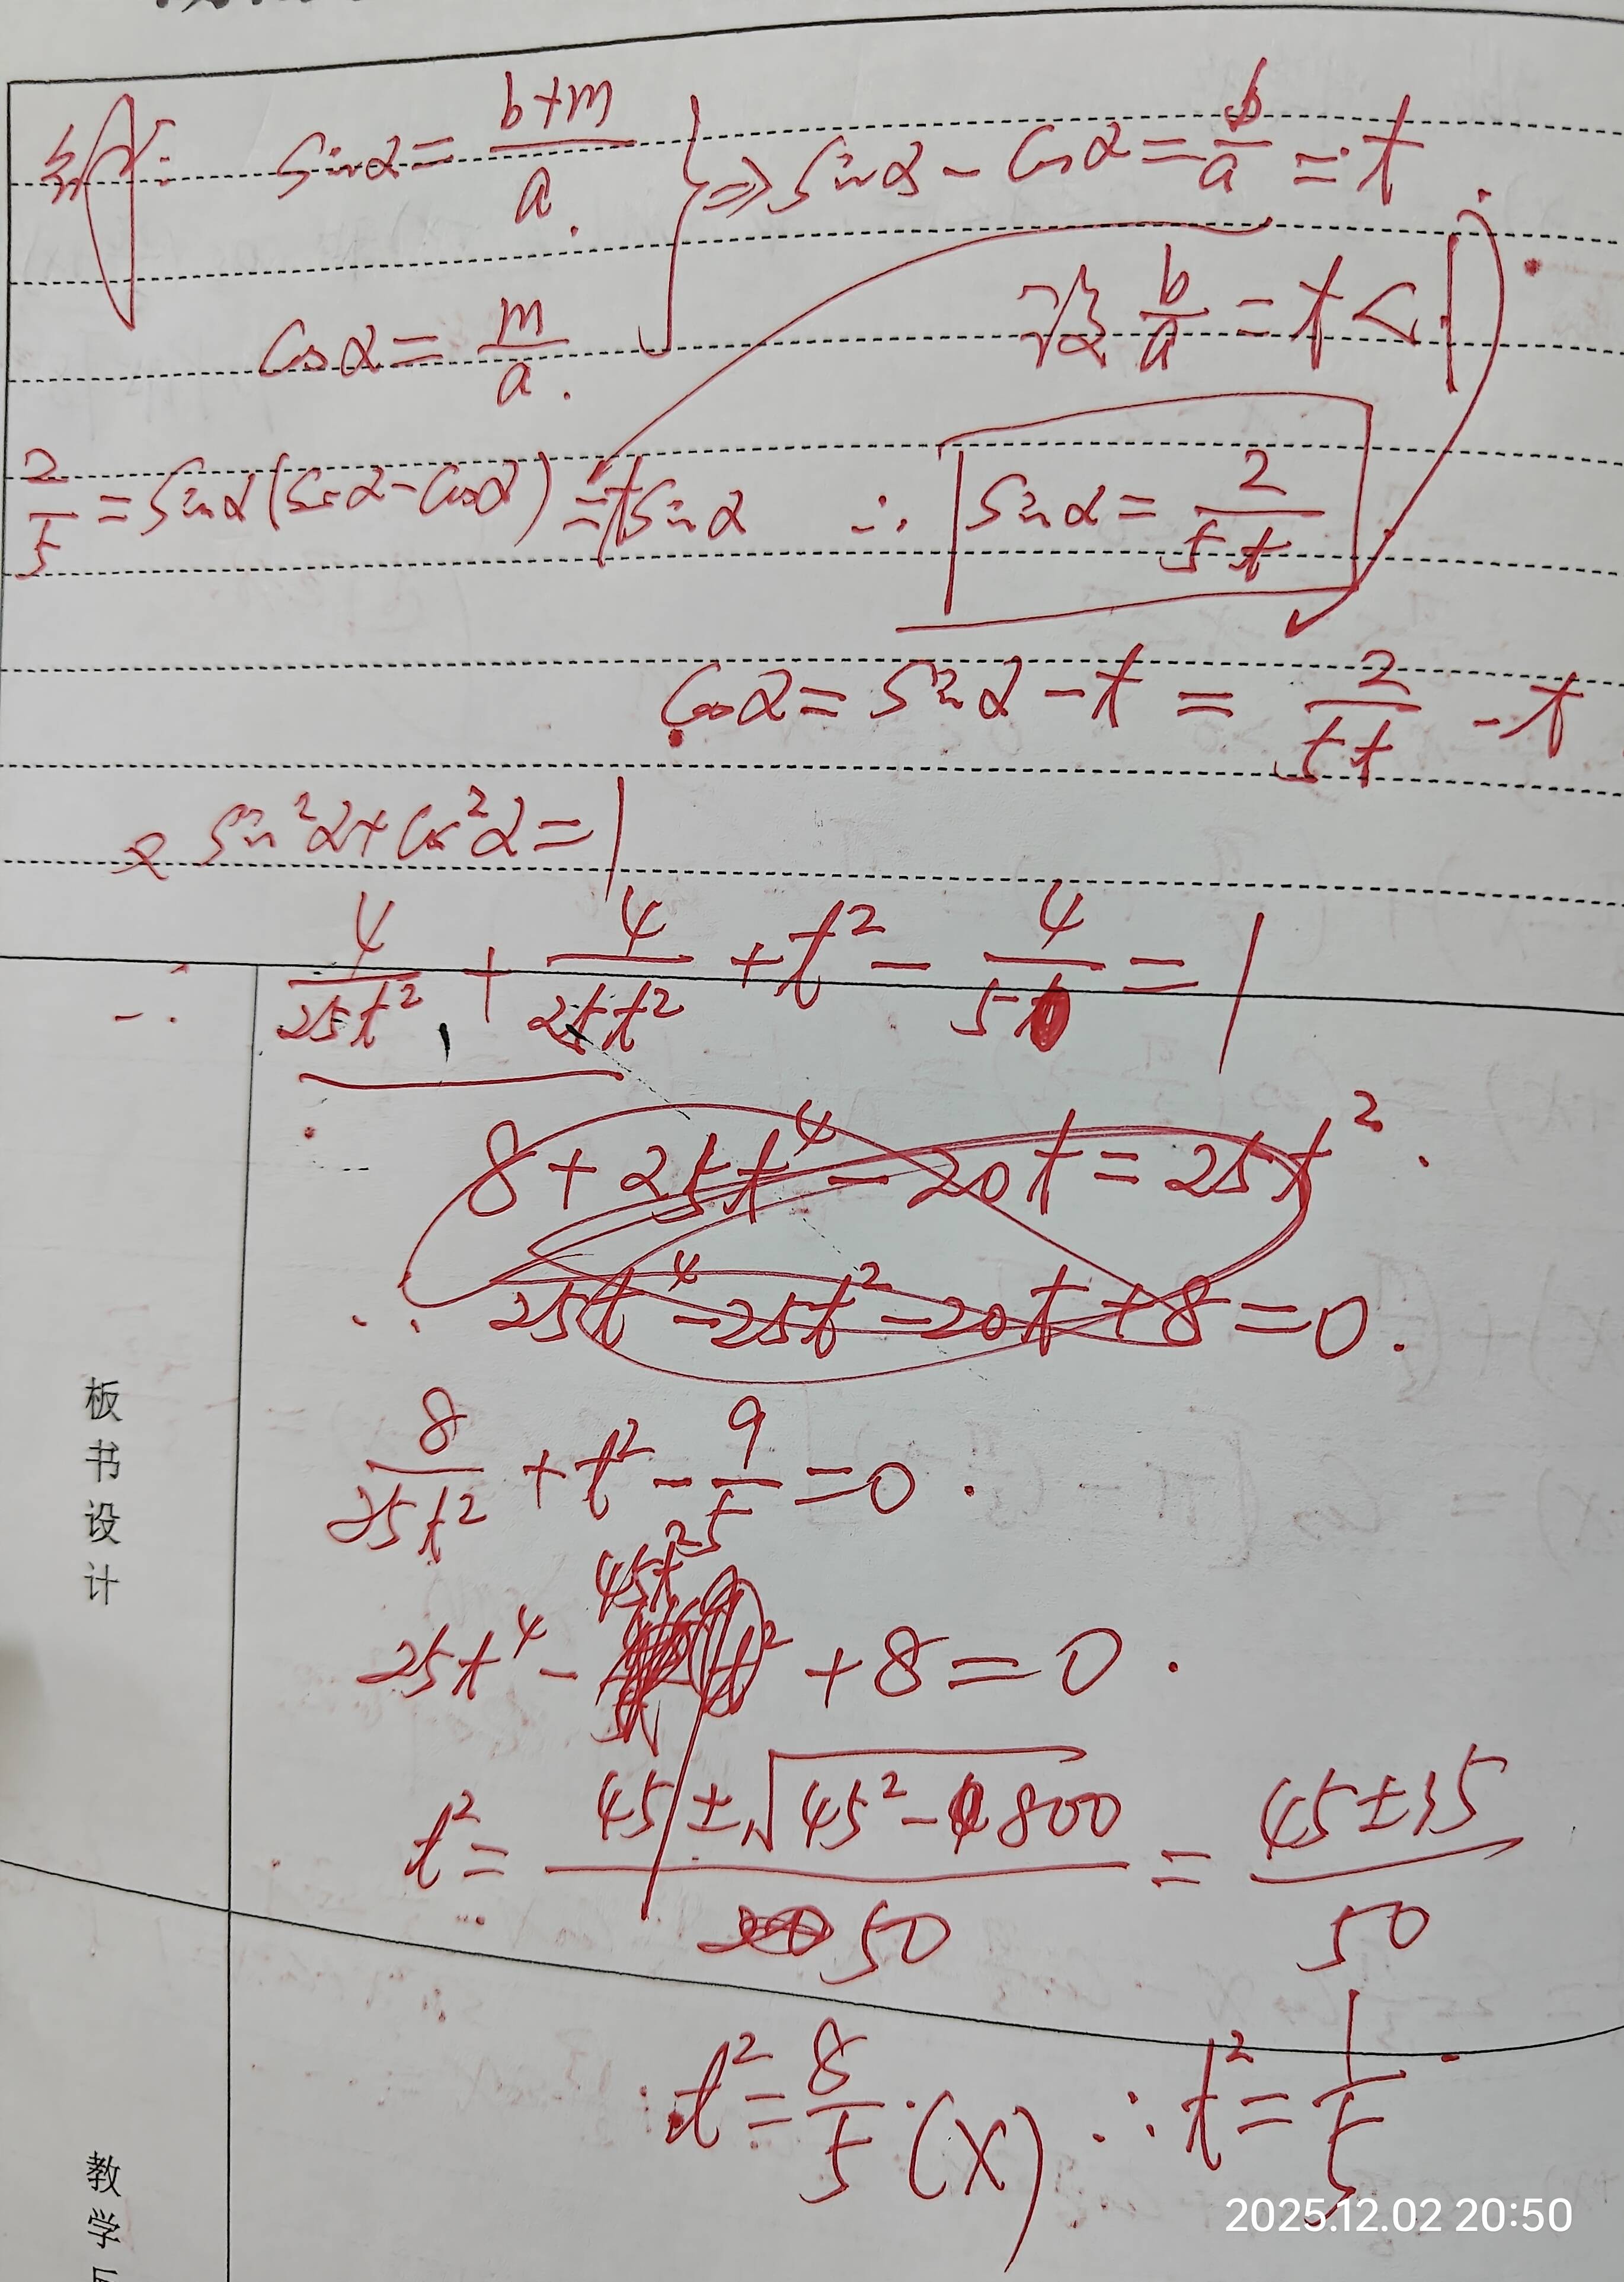 解: sinα = (b+m)/a } ⇒ sinα - cosα = b/a = t
cosα = m/a.
b/a = t < 1
2/5 = sinα(sinα - cosα) = t sinα ∴ sinα = 2/(5t)
cosα = sinα - t = 2/(5t) - t
又 sin²α + cos²α = 1
∴ 4/(25t²) + 4/(25t²) + t² - 4/5 = 1
8 + 25t⁴ - 20t = 25t²
∴ 25t⁴ - 25t² - 20t + 8 = 0.
8/(25t²) + t² - 9/5 = 0.
25t⁴ - 45t² + 8 = 0.
t² = (45 ± √(45² - 800))/50 = (45 ± 35)/50
t² = 8/5 (×) ∴ t² = 1/5
板书设计
教学
2025.12.02 20:50